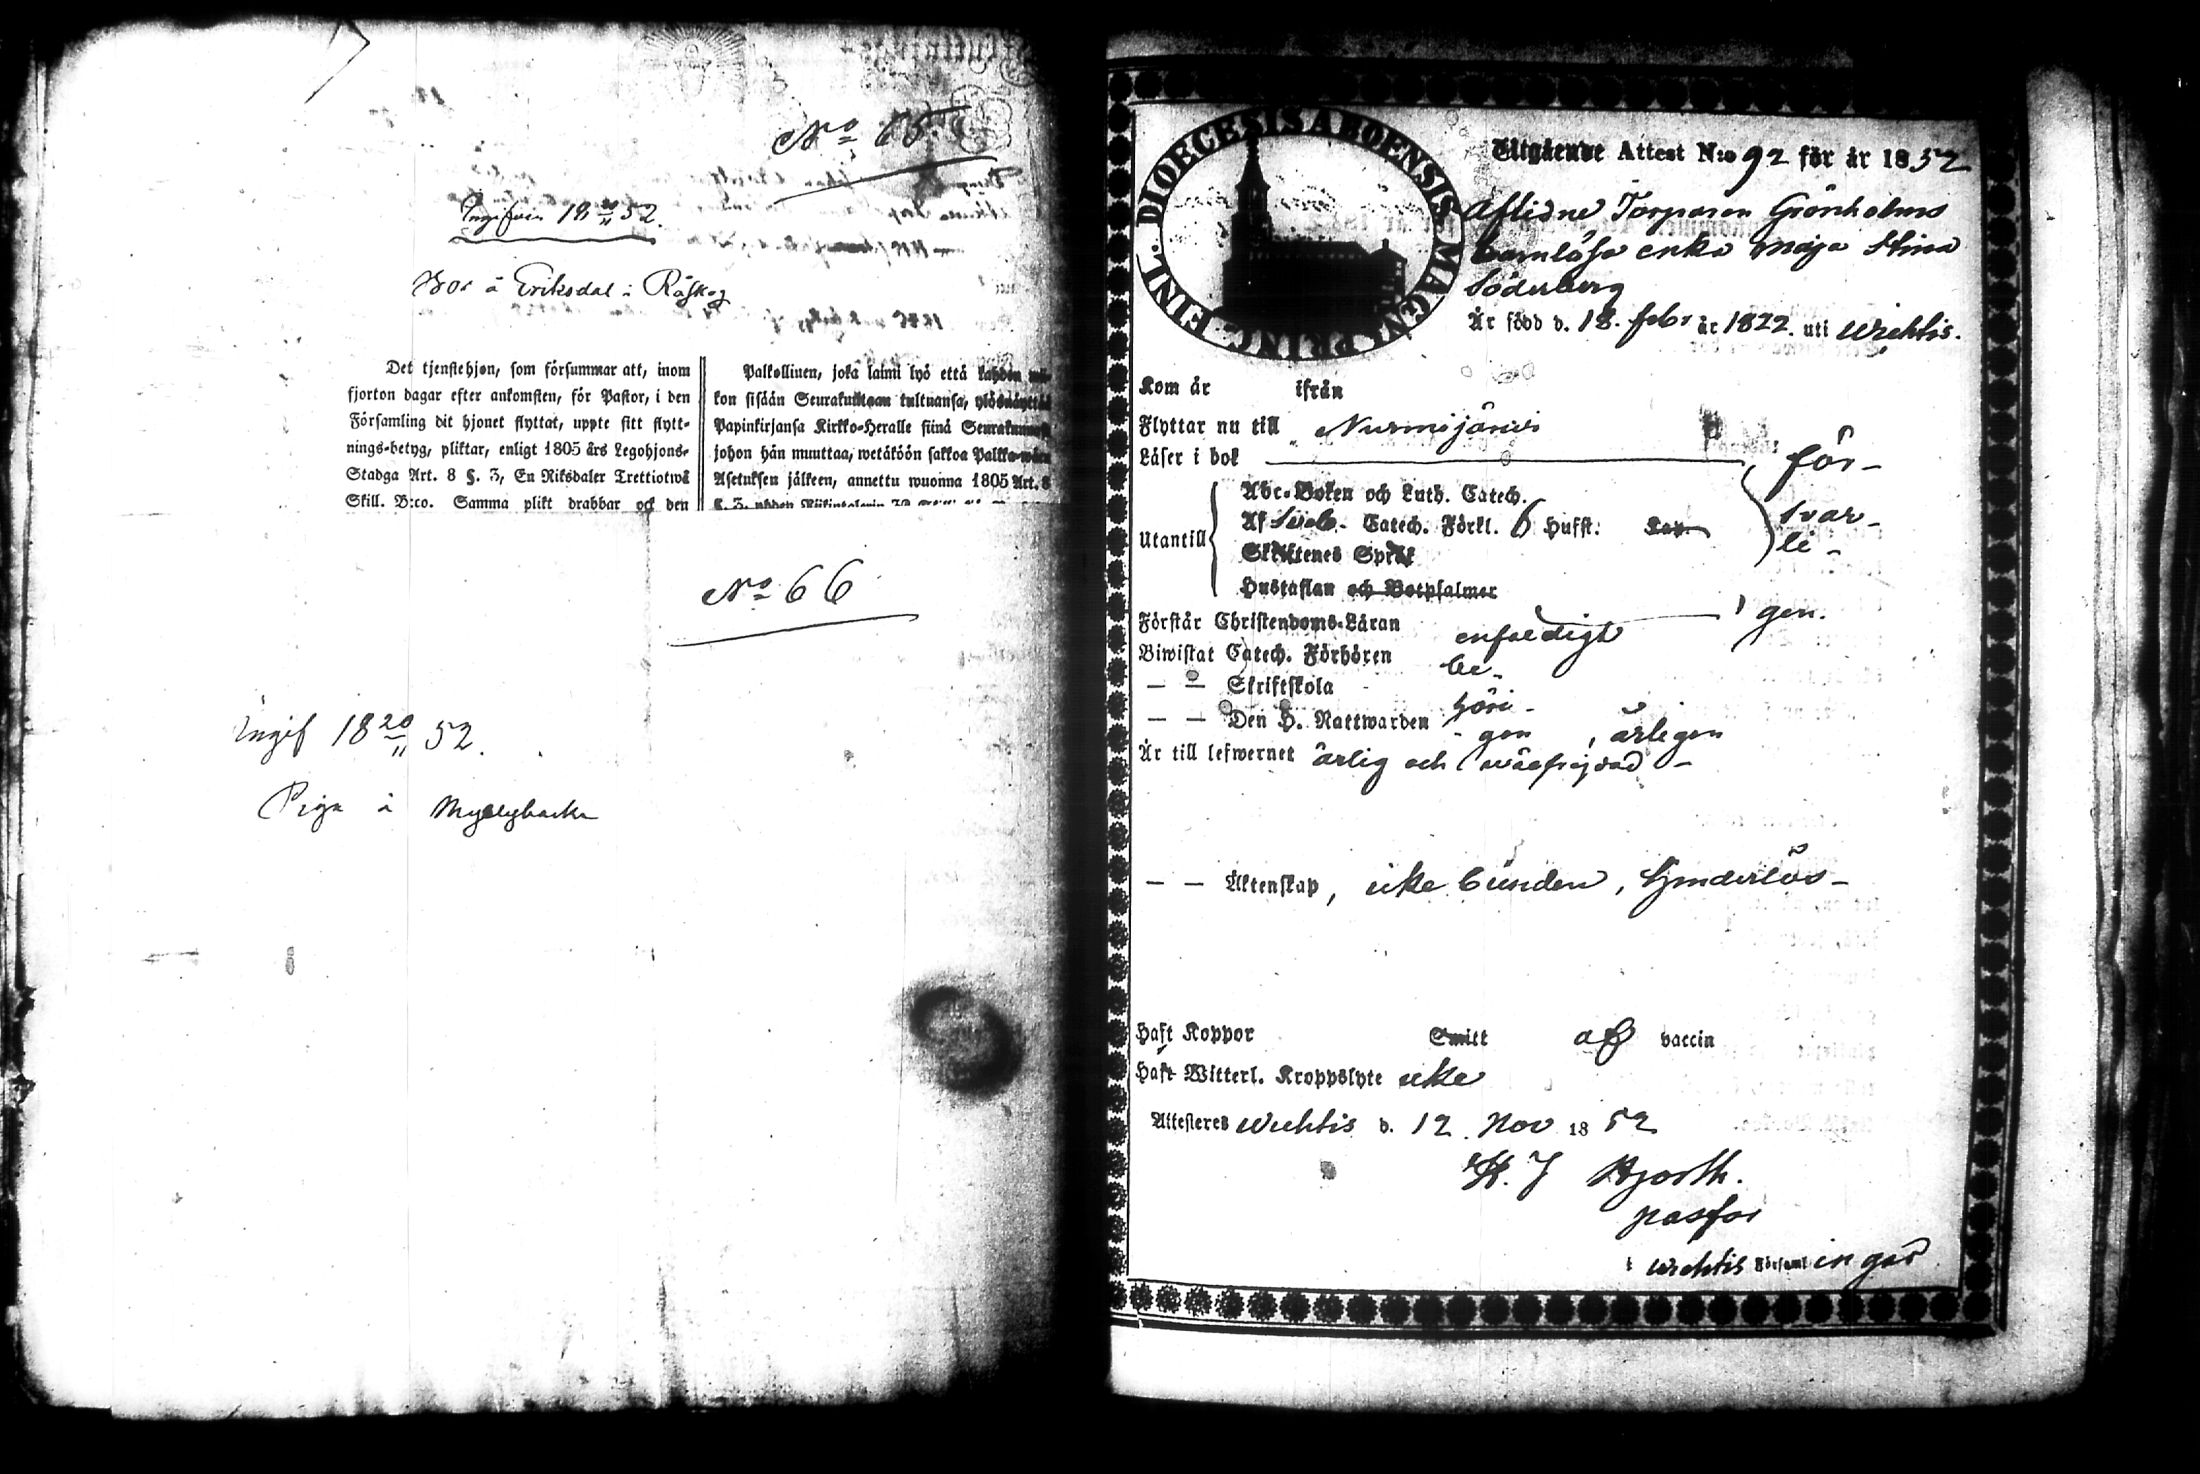 No 65
Ingifvin 18 20/11 52.
Bor å Eriksdal i Röskog
Det tjenstehjon, som försummar att, inom
fjorton dagar efter ankomsten, för Pastor, i den
Församling dit hjonet flyttat, uppte sitt flytt-
nings-betyg, pliktar, enligt 1805 års Legohjons-
Stadga Art. 8 §. 3, En Riksdaler Trettiotwå
Skill. B:co. Samma plikt drabbar ock den
Palkollinen, joka laimi lyö että kahden wii-
kon sisään Seurakuntaan tultuansa, ylösnäyttää
Papinkirjansa Kirkko-Herralle siinä Seurakunnas
johon hän muuttaa, wetäköön sakkoa Palkka-wäen
Asetuksen jälkeen, annettu wuonna 1805 Art. 8
§. 3. yhden Riikintalerin
No 66
Ingif 18 20/11 52.
Piga å Myllybacka
FINL. DIOECESIS ABOENSIS MAGN. PRINC.
Utgående Attest N:o 92 för år 1852
Aflidne Torparen Grönholms
barnlösa enka Maja Stina
Söderberg
Är född d. 18. febr är 1822. uti Wichtis.
Kom år ifrån
Flyttar nu till Nurmijärvi
Läser i bok för-
Utantill
Abc-Boken och Luth. Catech.
Af Sveb. Catech. Förkl. 6 Hufst. Kap. svar-
Skriftenes Språk le-
Hustaflan och Botpsalmer
Förstår Christendoms-Läran enfaldigt gen.
Biwistat Catech. Förhören be-
— — Skriftskola höri-
— — Den H. Nattwarden gen, årligen
Är till lefwernet ärlig och wälfrejdad -
— — Äktenskap, icke bunden, hinderlös -
Haft Koppor Smitt af vaccin
Haft Witterl. Kroppslyte icke
Attesteres Wichtis d. 12. Nov 1852
K. J Hjorth.
pastor
i Wichtis Församlingar